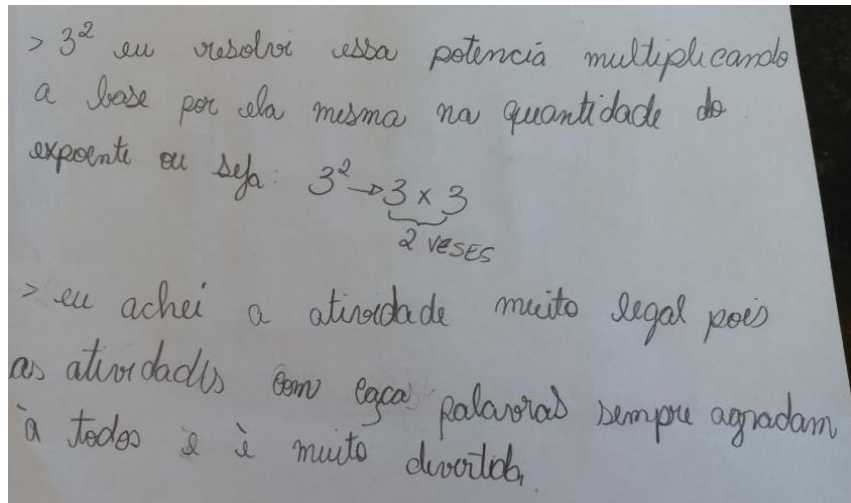 > 3² eu resolvi essa potencia multiplicando
a base por ela mesma na quantidade do
expoente ou seja: 3² → 3 x 3
2 VESES
> eu achei a atividade muito legal pois
as atividades com caça palavras sempre agradam
à todos e è muito divertido.